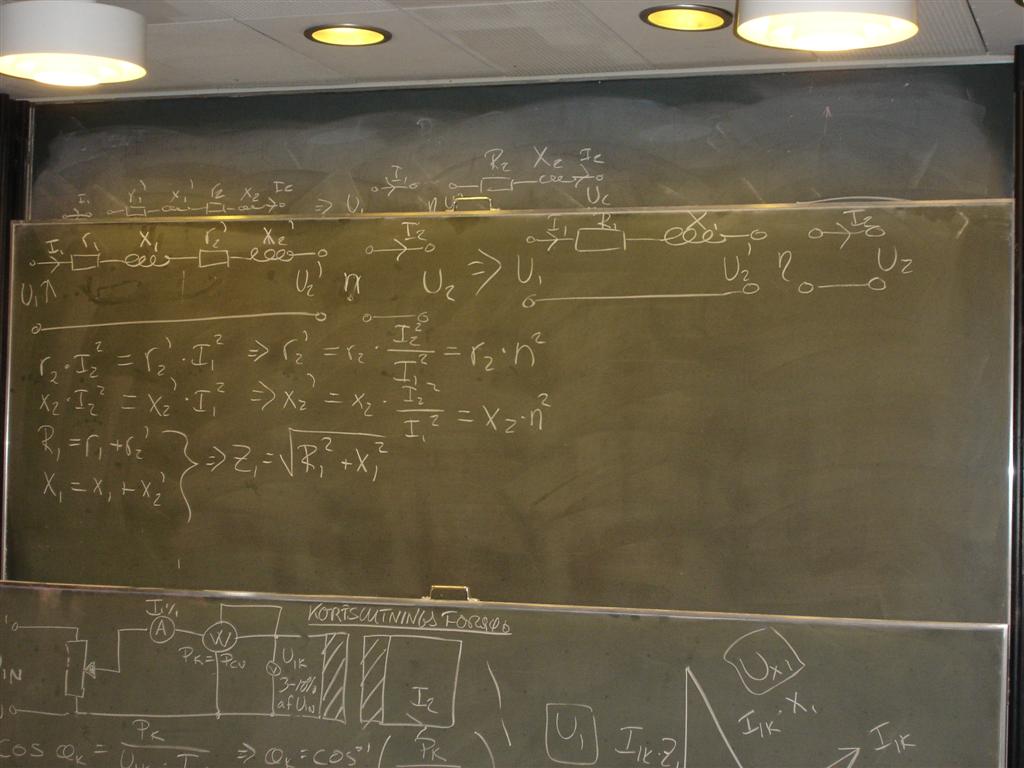 R₂ X₂ I₂
I₁ r₁' x₁' r₂ x₂ I₂ ⇒ U₁ I₁ n U₂
I₁ r₁ x₁ r₂' x₂' I₂ I₁ R₁ X₁ I₂
U₁ U₂' n U₂ ⇒ U₁ U₂' n U₂
r₂·I₂² = r₂'·I₁² ⇒ r₂' = r₂·I₂²/I₁² = r₂·n²
x₂·I₂² = x₂'·I₁² ⇒ x₂' = x₂·I₂²/I₁² = x₂·n²
R₁ = r₁ + r₂'
X₁ = x₁ + x₂' } ⇒ Z₁ = √(R₁² + X₁²)
KORTSLUTNINGS FORSØG
A W
P_K = P_CU
U_1K
3-10%
af U_1N
I₂
U_X1
U₁ I_1K·Z₁ I_1K·X₁ I_1K
COS φ_K = P_K ⇒ φ_K = COS⁻¹ ( P_K